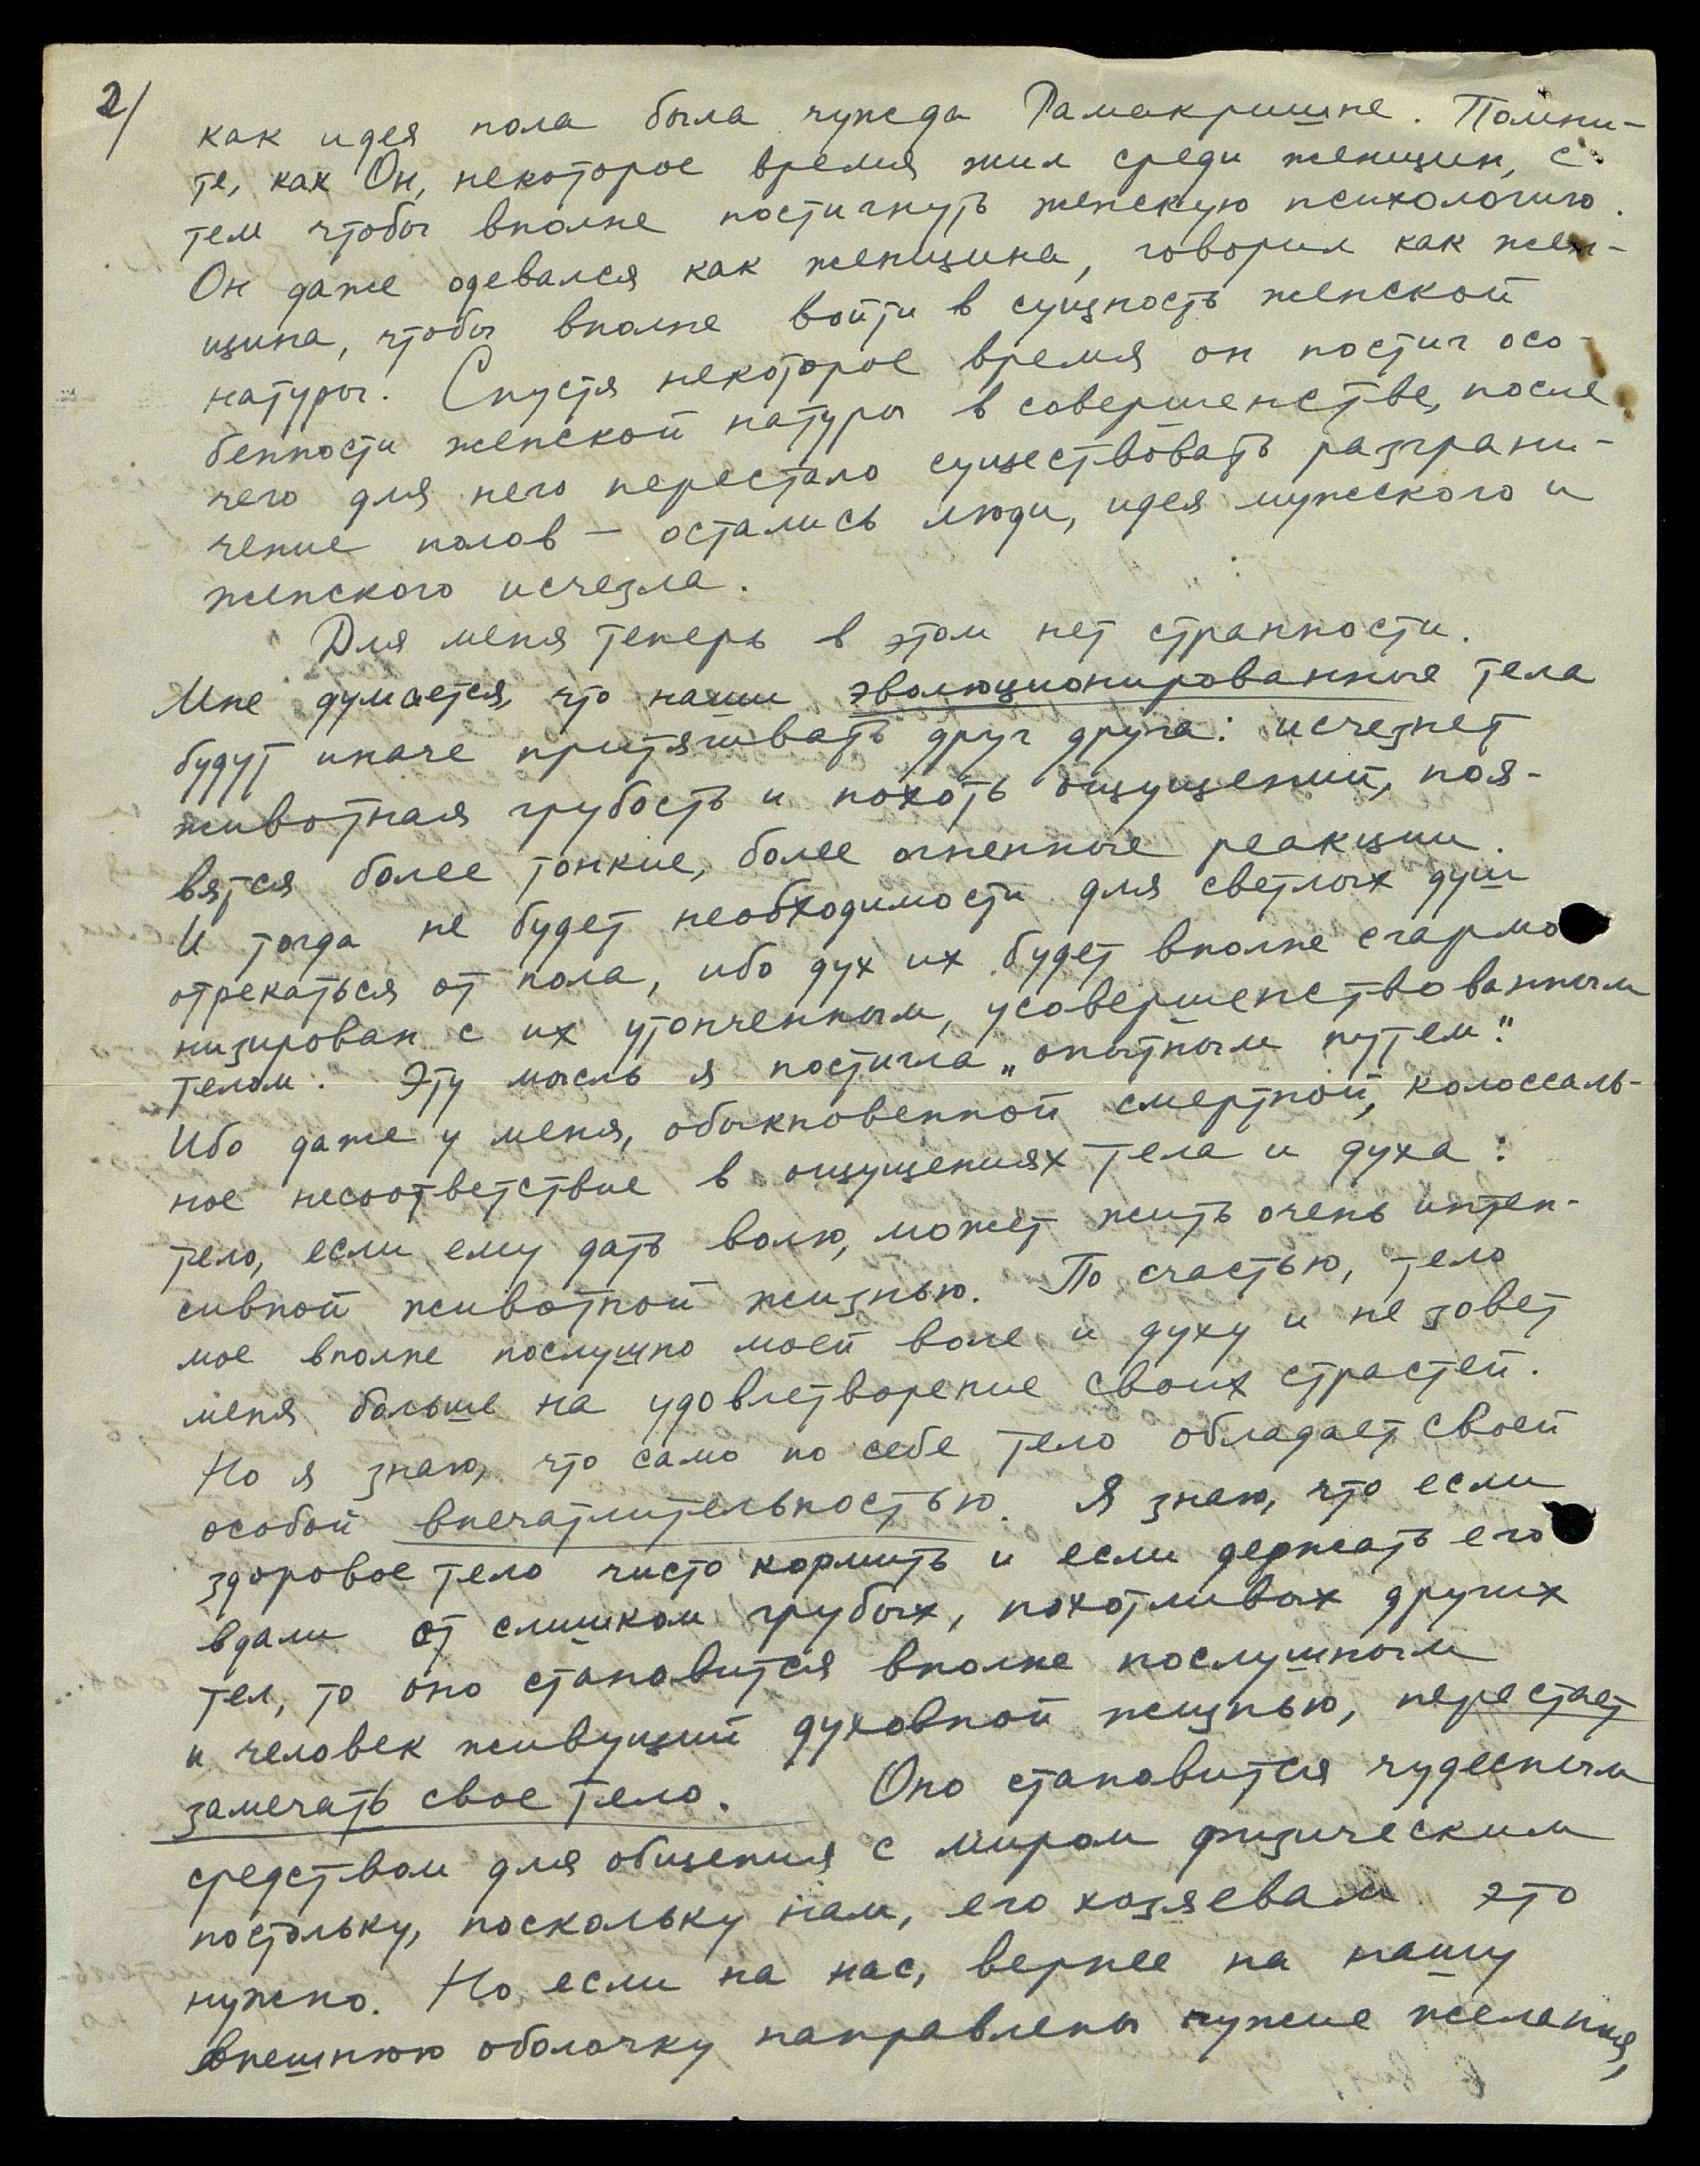 2/
как идея пола была чужда Рамакришне. Помни-
те, как Он, некоторое время жил среди женщин, с
тем чтобы вполне постигнуть женскую психологию.
Он даже одевался как женщина, говорил как жен-
щина, чтобы вполне войти в сущность женской
натуры. Спустя некоторое время он постиг осо-
бенности женской натуры в совершенстве, после
чего для него перестало существовать разграни-
чение полов — остались люди, идея мужского и
женского исчезла.
Для меня теперь в этом нет странности.
Мне думается, что наши эволюционированные тела
будут иначе притягивать друг друга: исчезнет
животная грубость и похоть ощущений, поя-
вятся более тонкие, более огненные реакции.
И тогда не будет необходимости для светлых душ
отрекаться от пола, ибо дух их будет вполне сгармо
низирован с их утонченным, усовершенствованным
телом. Эту мысль я постигла „опытным путем".
Ибо даже у меня, обыкновенной смертной, колоссаль-
ное несоответствие в ощущениях тела и духа:
тело, если ему дать волю, может жить очень интен-
сивной животной жизнью. По счастью, тело
мое вполне послушно моей воле и духу и не зовет
меня больше на удовлетворение своих страстей.
Но я знаю, что само по себе тело обладает своей
особой впечатлительностью. Я знаю, что если
здоровое тело чисто кормить и если держать его
вдали от слишком грубых, похотливых других
тел, то оно становится вполне послушным
и человек живущий духовной жизнью, перестает
замечать свое тело. Оно становится чудесным
средством для общения с миром физическим
постольку, поскольку нам, его хозяевам это
нужно. Но если на нас, вернее на нашу
внешнюю оболочку направлены чужие желания,